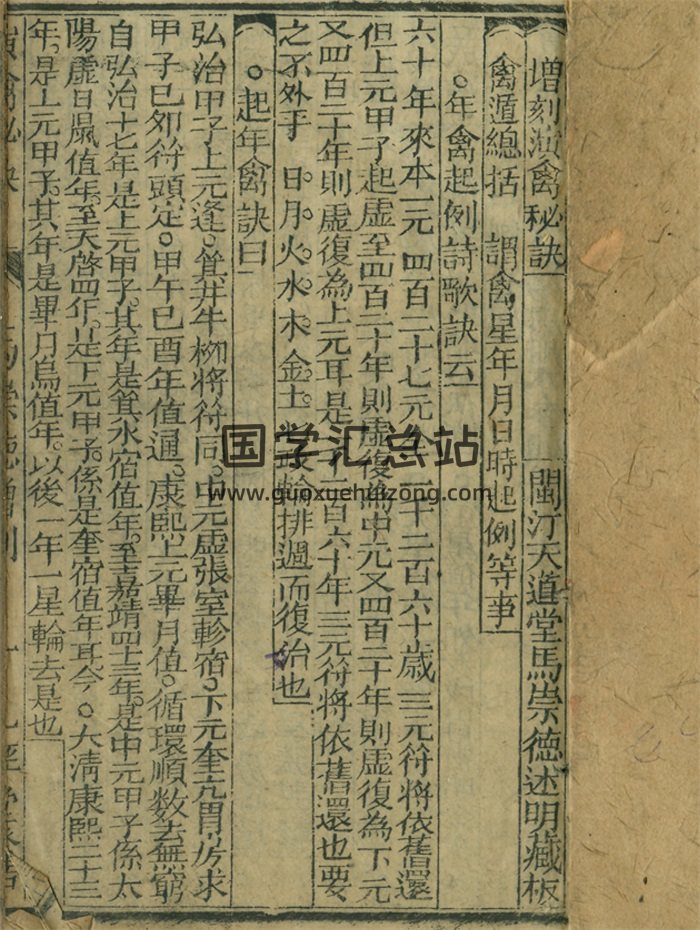 增刻演禽秘訣　閩汀天道堂馬崇德述明藏板
禽遁總括　謂禽星年月日時起例等事
○年禽起例詩歌訣云
六十年來本一元四百二十七元全二千二百六十歲三元符將依舊還
但上元甲子起虛至四百二十年則虛復為中元又四百二十年則虛復為下元
又四百二十年則虛復為上元耳是千二百六十年三元符將依舊還也要
之不外乎　日月火水木金土政輪排週而復治也
○起年禽訣曰
弘治甲子上元逢箕井牛柳將符同中元虛張室軫宿下元奎亢胃房求
甲子已夘符頭定甲午已酉年值通康熙上元畢月值循環順数去無窮
自弘治十七年是上元甲子其年是箕水宿值年至嘉靖四十三年是中元甲子係太
陽虛日鼠值年至天啓四年是下元甲子係是奎宿值年耳今○大清康熙二十三
年是上元甲子其年是畢月烏值年以後一年一星輪去是也
国学汇总站
www.guoxuehuizong.com